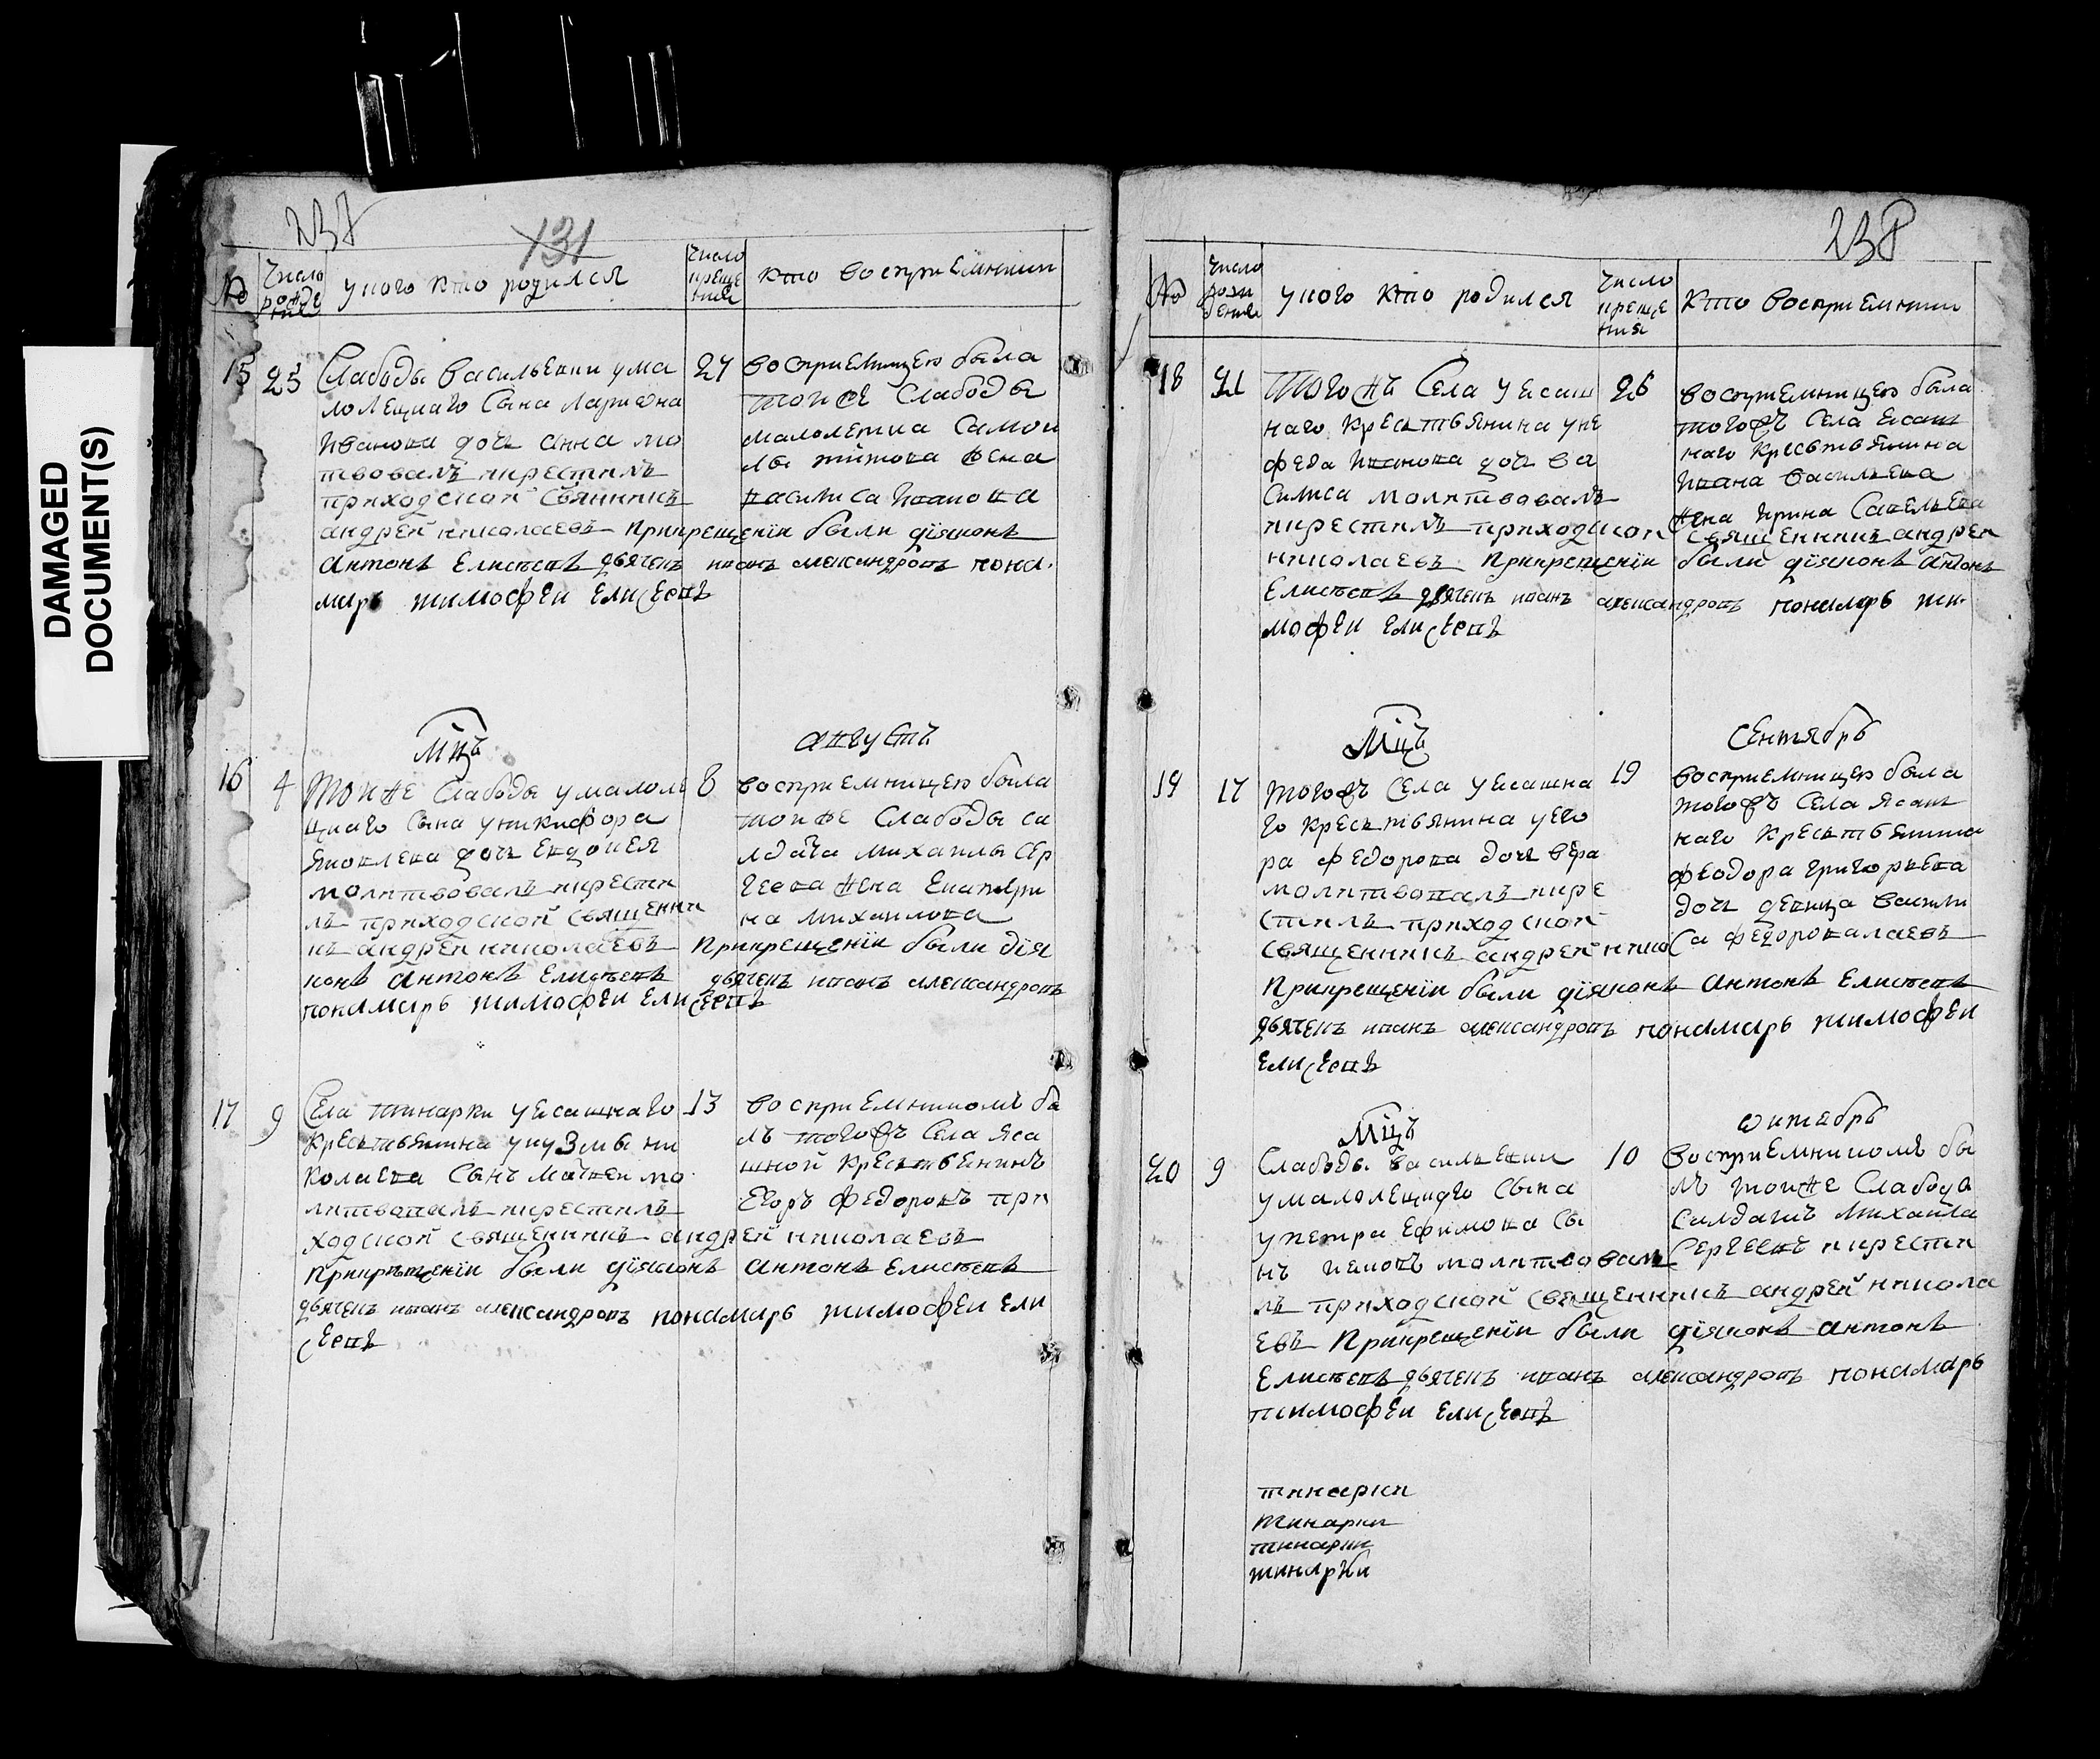 DAMAGED
DOCUMENT(S)
237
131
№
Число рожде ния
у кого кто родился
Число креще ния
кто восприемники
15
25
Слабоды васильевки ума
лолецкаго сына лариѡна
иванова дочь анна мо
твовалъ икрестилъ
приходской свяникъ
андрей николаевъ прикрещенїи были дїяконъ
антонъ елисеевъ дьячекъ иванъ александровъ пона.
марь тимофеи елисеевъ
27
восприемницею была
тоиже слабоды
малолетка самои
лы титова жена
василиса иванова
мцъ
августъ
16
4
тоиже слабоды умалоле
цкаго сына уникифора
яковлева дочь евдокея
молитвовалъ икрести
лъ приходской священни
къ андреи николаевъ прикрещенїи были дїя
конъ антонъ елисеевъ дьячекъ иванъ александровъ
понамарь тимофеи елисеевъ
8
восприемницею была
тоиже слабоды са
лдата михаилы сер
геева жена екатери
на михаилова
17
9
села тинарки уесашнаго
кресьтьянина укузмы ни
колаева сынъ матвеи мо
литвовалъ икрестилъ
ходской священникъ андрей николаевъ
прикрещенїи были дїяконъ антонъ елисеевъ
дьячекъ иванъ александровъ понамарь тимофеи ели
сеевъ
13
восприемникомъ бы
лъ тогожъ села яса
шной кресьтьенинъ
егоръ федоровъ при
238
№
Число рожи дения
у кого кто родился
Число креще ния
кто восприемники
18
21
тогожъ села уесаш
наго кресьтьянина уне
феда иванова дочь ва
силиса молитвовалъ
икрестилъ приходской священникъ андреи
николаевъ прикрещенїи были дїяконъ антонъ
елисеевъ дьячекъ иванъ александровъ понамарь ти.
мофеи елисеевъ
26
восприемницею была
тогожъ села есаш
наго кресьтьянина
ивана васильева
жена ирина савельева
мцъ
сентябрь
19
17
тогожъ села уесашна
го кресьтьянина уего
ра федорова дочь вера
молитвовалъ икре
стилъ приходской
священникъ андрей нико
прикрещенїи были дїяконъ антонъ елисеевъ
дьячекъ иванъ александровъ понамарь тимофеи
елисеевъ
19
восприемницею была
тогожъ села ясаш
наго кресьтьянина
феодора григорьева
дочь девица васили
са федорова лаевъ
мцъ
ѡктебрь
20
9
слабоды васильевки
умалолецкаго сына
упетра ефимова сы
нъ иаковъ молитвовалъ
лъ приходской священникъ андрей никола
евъ прикрещенїи были дїяконъ антонъ
елисеевъ дьячекъ иванъ александровъ понамарь
тимофеи елисеевъ
10
восприемникомъ бы
лъ тоиже слабоды
салдатъ михаила
сергеевъ икрести
тинарки
тинарки
тинарки
тинарки